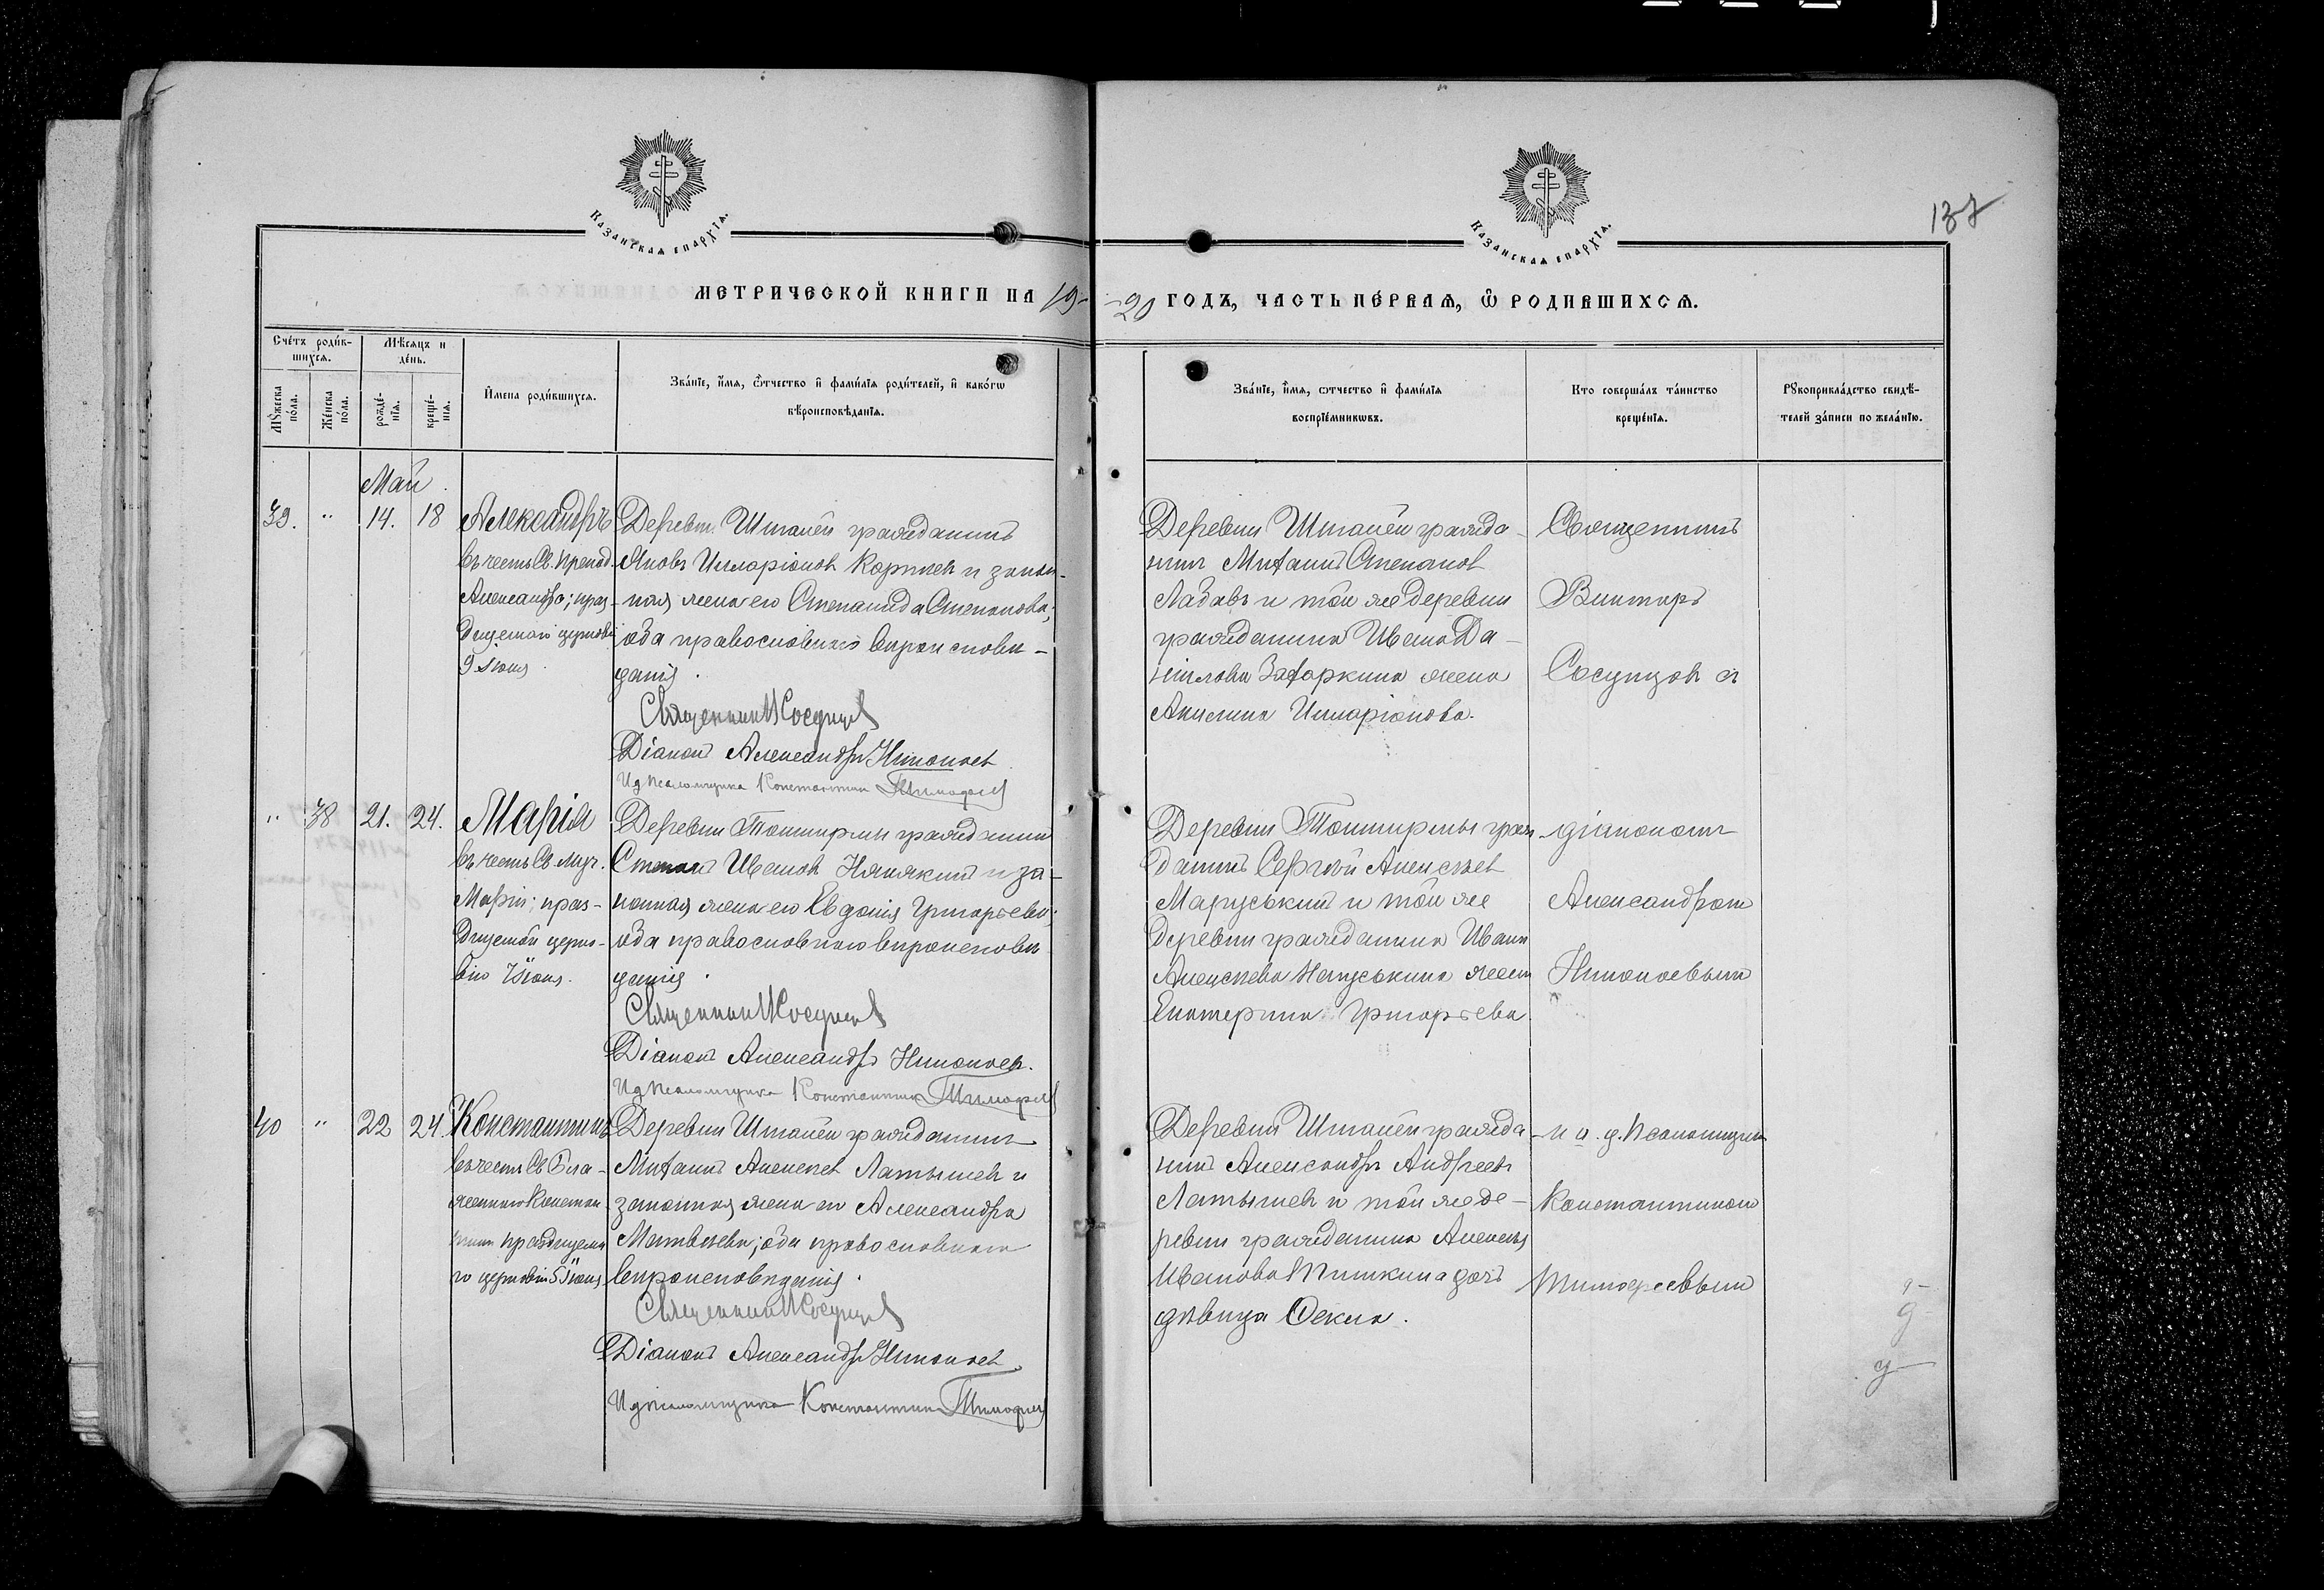 Казанская епархїя.
Казанская епархїя.
137
МЕТРИЧЕСКОЙ КНИГИ НА 19-
-20 ГОДЪ, ЧАСТЬ ПЕ́РВАЯ, Ѽ РОДИВШИХСЯ.
Сче́тъ роди́в-
шихсѧ.
Мѣ́сяцъ и
де́нь.
Мꙋ́жеска
по́ла.
Же́нска
по́ла.
рожде́-
нїѧ.
креще́-
нїѧ.
И҆мена роди́вшихсѧ.
Зва́нїе, и҆́мѧ, ѻ҆́тчество и҆ фами́лїѧ роди́телей, и҆ како́гѡ
вѣроисповѣ́данїѧ.
Зва́нїе, и҆́мѧ, ѻтчество и҆ фами́лїѧ
воспрїе́мникѡвъ.
Кто соверша́лъ та́инство
креще́нїѧ.
Рꙋкоприкла́дство свидѣ́-
телей за́писи по жела́нїю.
Май
39. " 14. 18 Александръ
въ честь Св. Препод.
Александра; праз-
днуемаго церковію
9 Іюня
Деревни Шталей гражданинъ
Яковъ Илларіонов и закон-
ная жена его Степанида Степанова;
оба православнаго вѣроисповѣ-
данія.
Священникъ Сосунцов
Діаконъ Александръ Никоноев
И д псаломщика Константин Тимофеев
Деревни Шталей гражда-
нин Степанов
и той же деревни
гражданина Ивана Да-
нилова жена
Акилина Илларіонова.
Священникъ
Викторъ
Сосунцов
" 38 21. 24. Марія
въ честь Св. муч.
Маріи; праз-
днуемой церко-
вію 7 Іюня.
Деревни гражданин
Степанъ Иванов и за-
конная жена его Евдокія Григорьева;
оба православнаго вѣроисповѣ-
данія.
Священникъ Сосунцов
Діаконъ Александръ Никоноев.
И д псаломщика Константин Тимофеев
Деревни граж-
данинъ Сергѣй Алексѣев
и той же
деревни гражданина Ивана
Алексѣева жена
Екатерина Григорьева.
діаконом
Александром
Никоноевым
40 " 22 24. Константинъ
въ честь Св. Бла-
женнаго Констан-
тина празднуема-
го церковію 5 Іюня
Деревни Шталей гражданин
Алексѣев Латышев и
законная жена его Александра
Матвѣева; оба православнаго
вѣроисповѣданія.
Священникъ Сосунцов
Діаконъ Александръ Никоноев
И д псаломщика Константин Тимофеев
Деревни Шталей гражда-
нинъ Александръ Андреев
Латышев и той же де-
ревни гражданина Алексѣя
Иванова дочь
дѣвица Фекла.
и. д. псаломщика
Константином
Тимофеевым